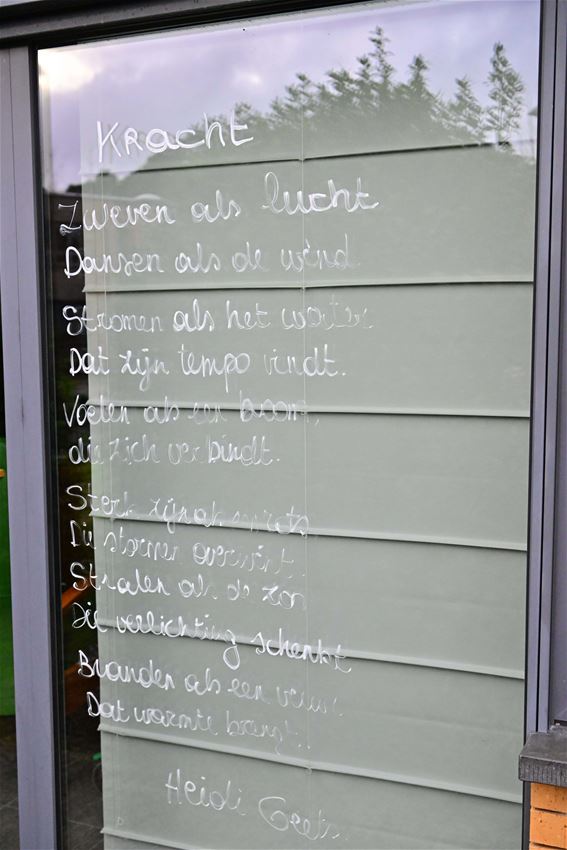 Kracht
Zweven als lucht
Dansen als de wind
Stromen als het water
Dat zijn tempo vindt.
Voelen als een boom,
die zich verbindt.
Sterk zijn als rots
Die stormen overwint.
Stralen als de zon
Die verlichting schenkt
Branden als een vuur.
Dat warmte brengt..
Heidi Geets.